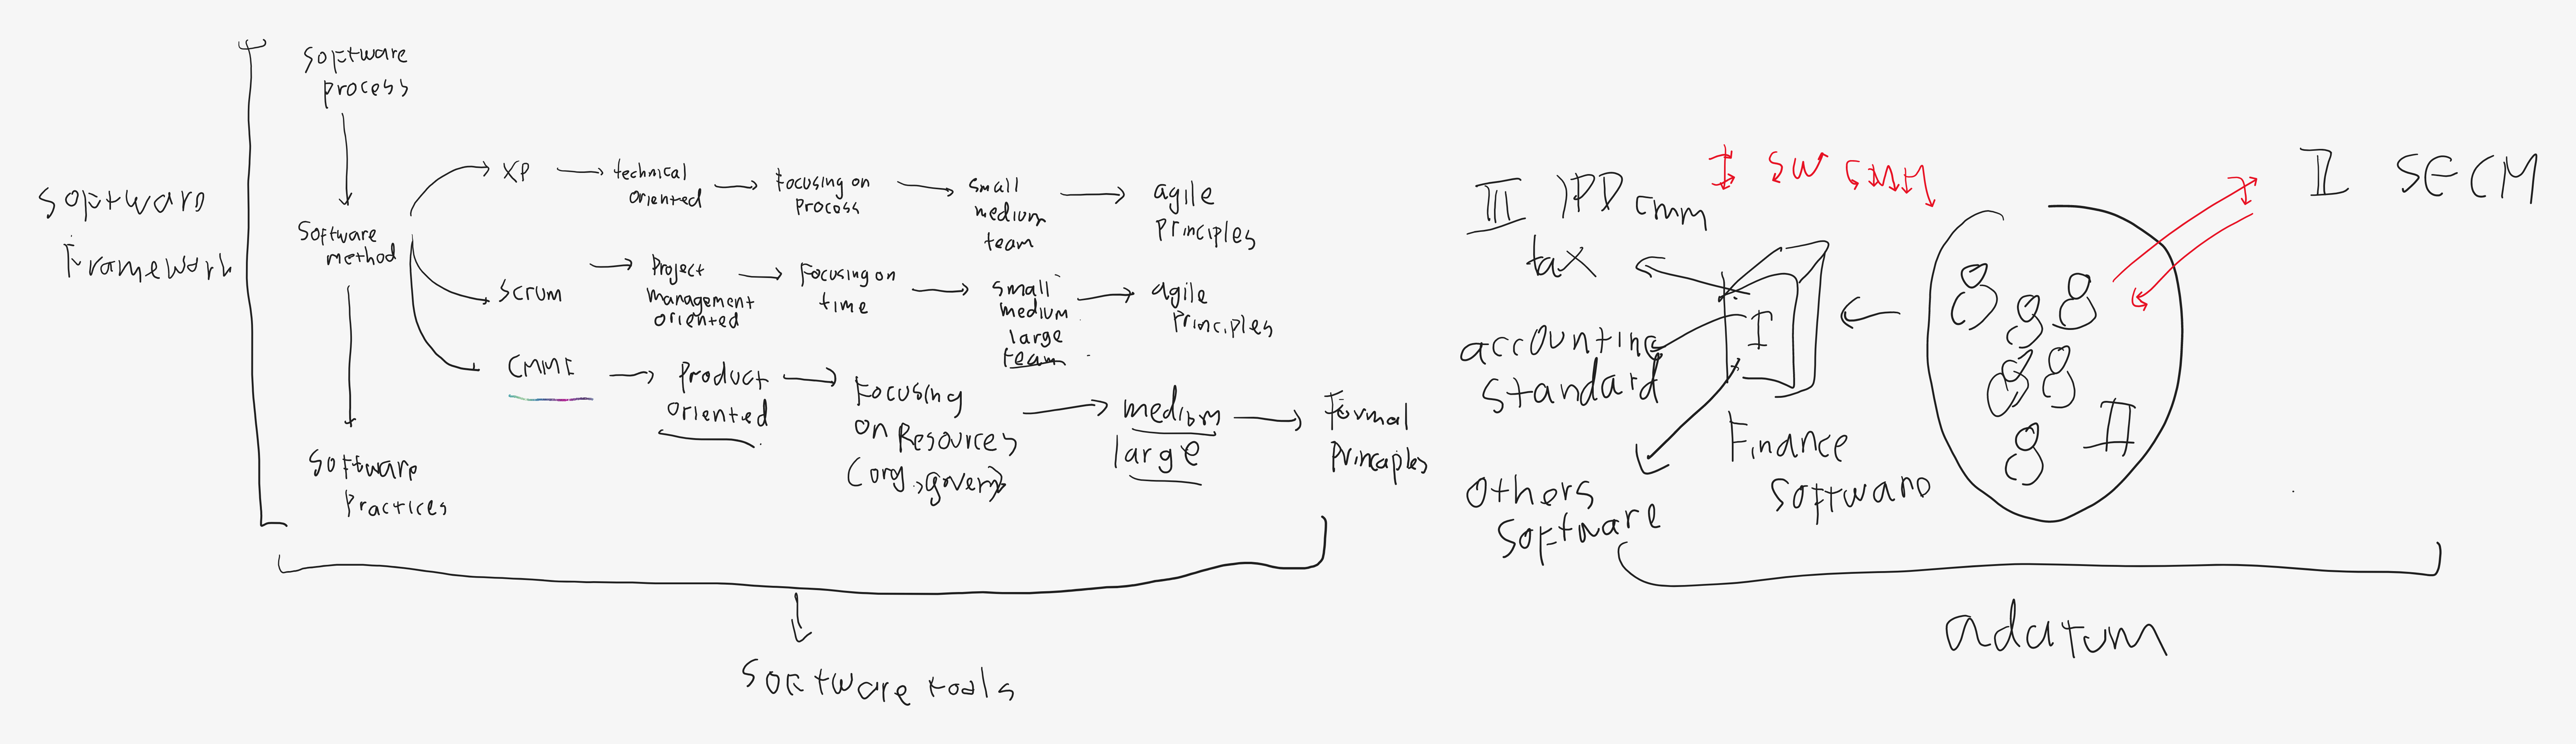 Software
Framework
Software
process
Software
method
Software
Practices
XP
technical
oriented
Focusing on
process
small
medium
team
agile
principles
Scrum
Project
management
oriented
Focusing on
time
small
medium
large
team
agile
principles
CMMI
Product
oriented
Focusing
on Resources
(org, govern)
medium
large
Formal
Principles
Software tools
III IPD cmm
I SW CMM
II SECM
tax
accounting
Standard
Others
Software
I
Finance
Software
II
I
adatum